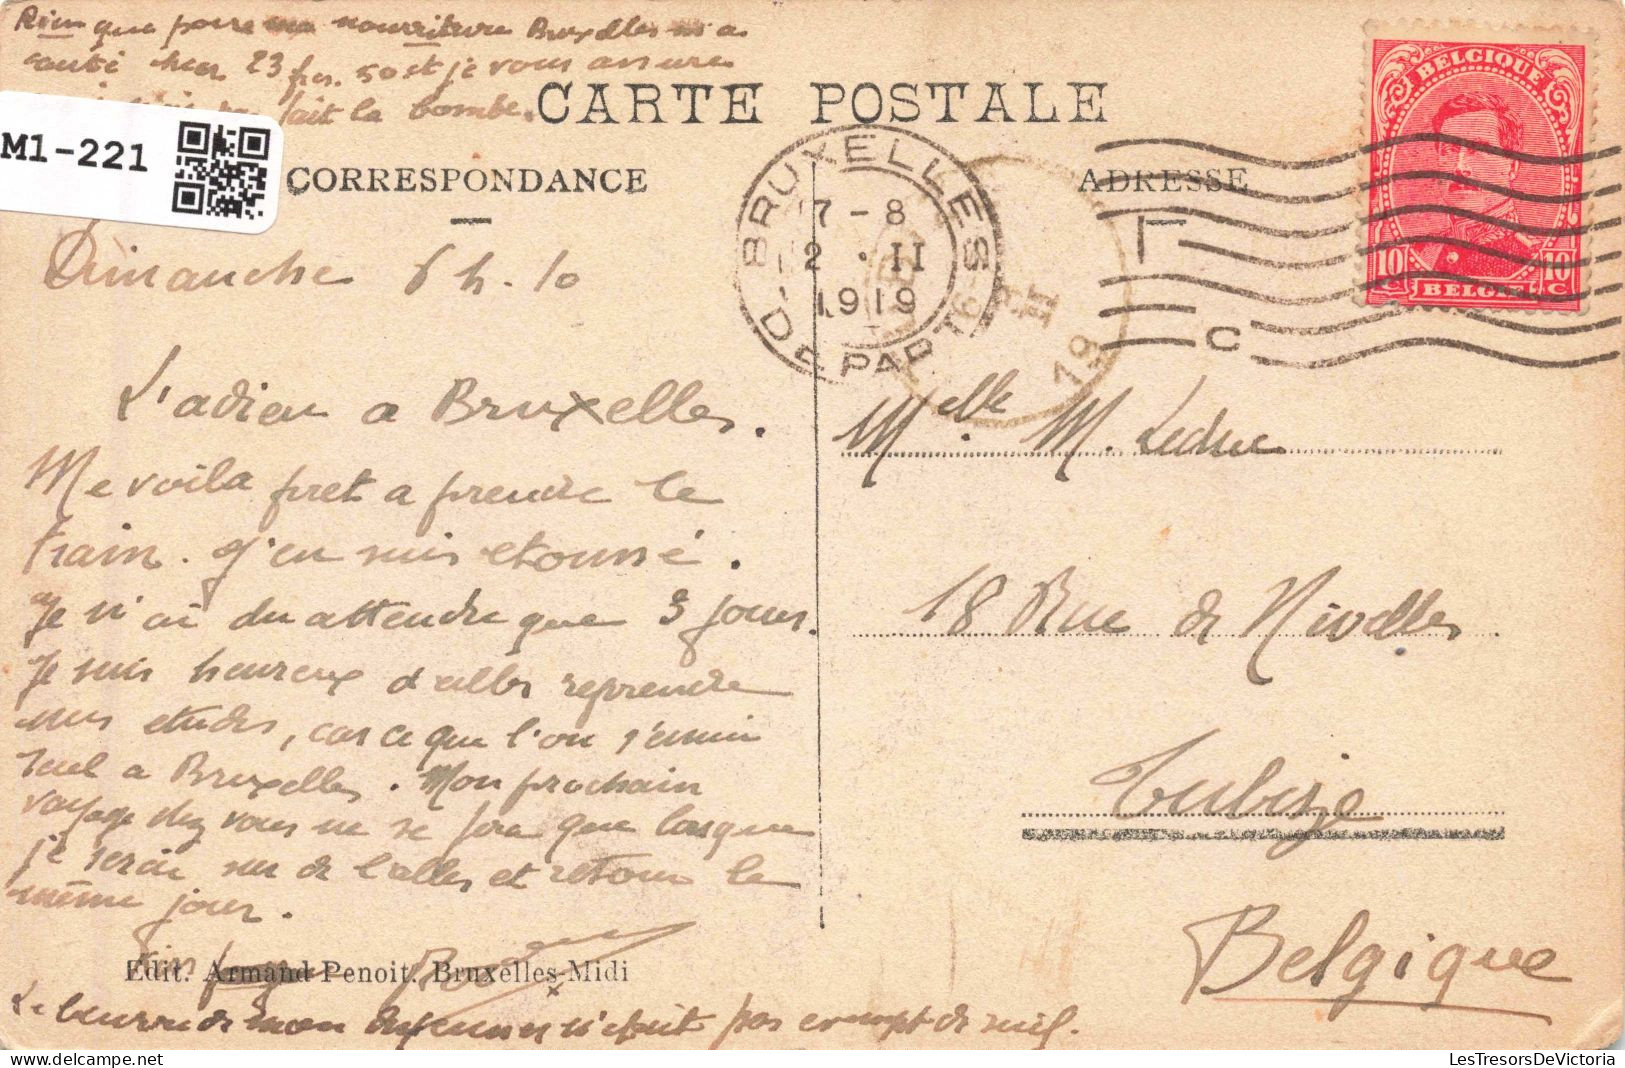 Rien que pour ma nourriture Bruxelles m'a
couté hier 23 frs. 50 et je vous assure
fait la bombe.
M1-221
CARTE POSTALE
CORRESPONDANCE
ADRESSE
BELGIQUE
10 C
10 C
BELGIE
BRUXELLES
7-8
2 . II
1919
DEPART
19
T
C
Dimanche 6 h. 10
L'adieu a Bruxelles.
Me voila pret a prendre le
train. J'en suis etonné.
Je n'ai du attendre que 3 jours.
Je suis heureux d'aller reprendre
mes etudes, car ce que l'on s'ennuie
seul a Bruxelles. Mon prochain
voyage chez vous ne se fera que lorsque
je serai sur de l'aller et retour le
même jour.
Edit. Armand Penoit. Bruxelles-Midi
Le beurre de mon dejeuner n'etait pas exempt de suif.
Melle M. Leduc
18 Rue de Nivelles
Tubize
Belgique
LesTresorsDeVictoria